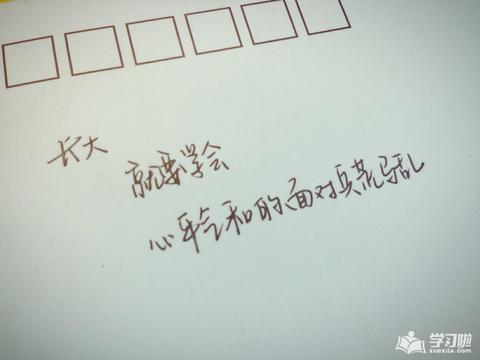 长大
就要学会
心平气和的面对兵荒马乱
学习啦
xuexila.com